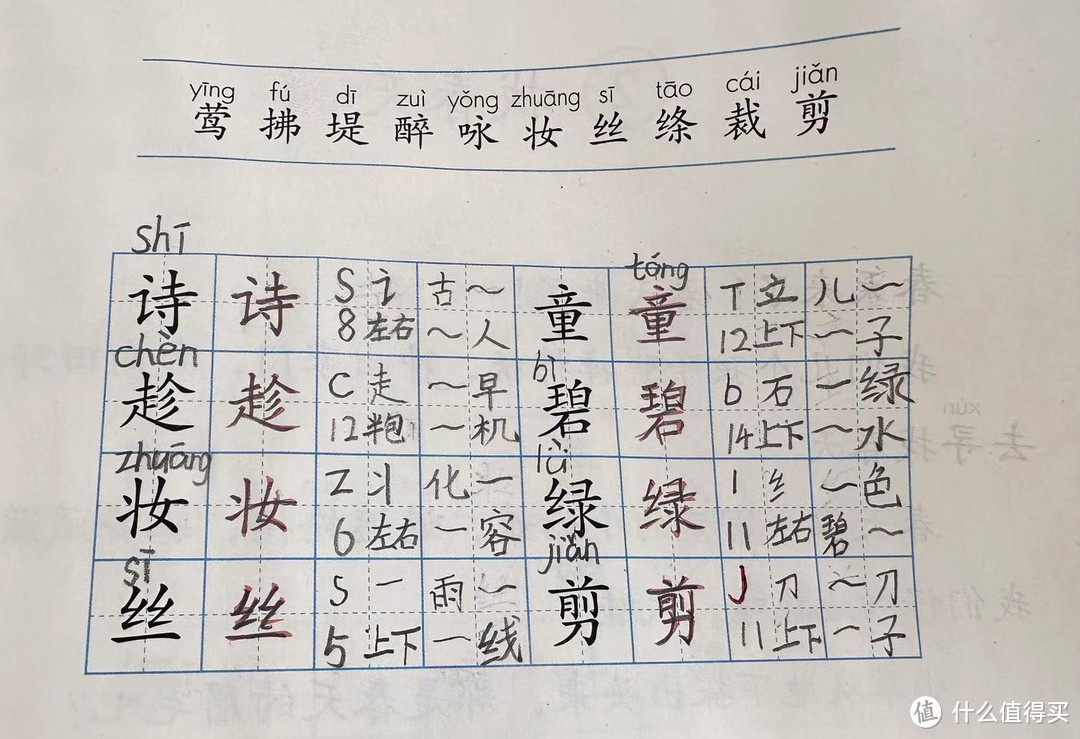 yīng fú dī zuì yǒng zhuāng sī tāo cái jiǎn
莺 拂 堤 醉 咏 妆 丝 绦 裁 剪
shī tóng
诗 诗 S 讠 古～ 童 童 T 立 儿～
8 左右 ～人 12 上下 ～子
chèn bì
趁 趁 C 走 ～早 碧 碧 b 石 ～绿
12 半包 ～机 14 上下 ～水
zhuāng lǜ
妆 妆 Z 丬 化～ 绿 绿 l 纟 ～色
6 左右 ～容 11 左右 碧～
sī jiǎn
丝 丝 S 一 雨～ 剪 剪 J 刀 ～刀
5 上下 ～线 11 上下 ～子
值 什么值得买